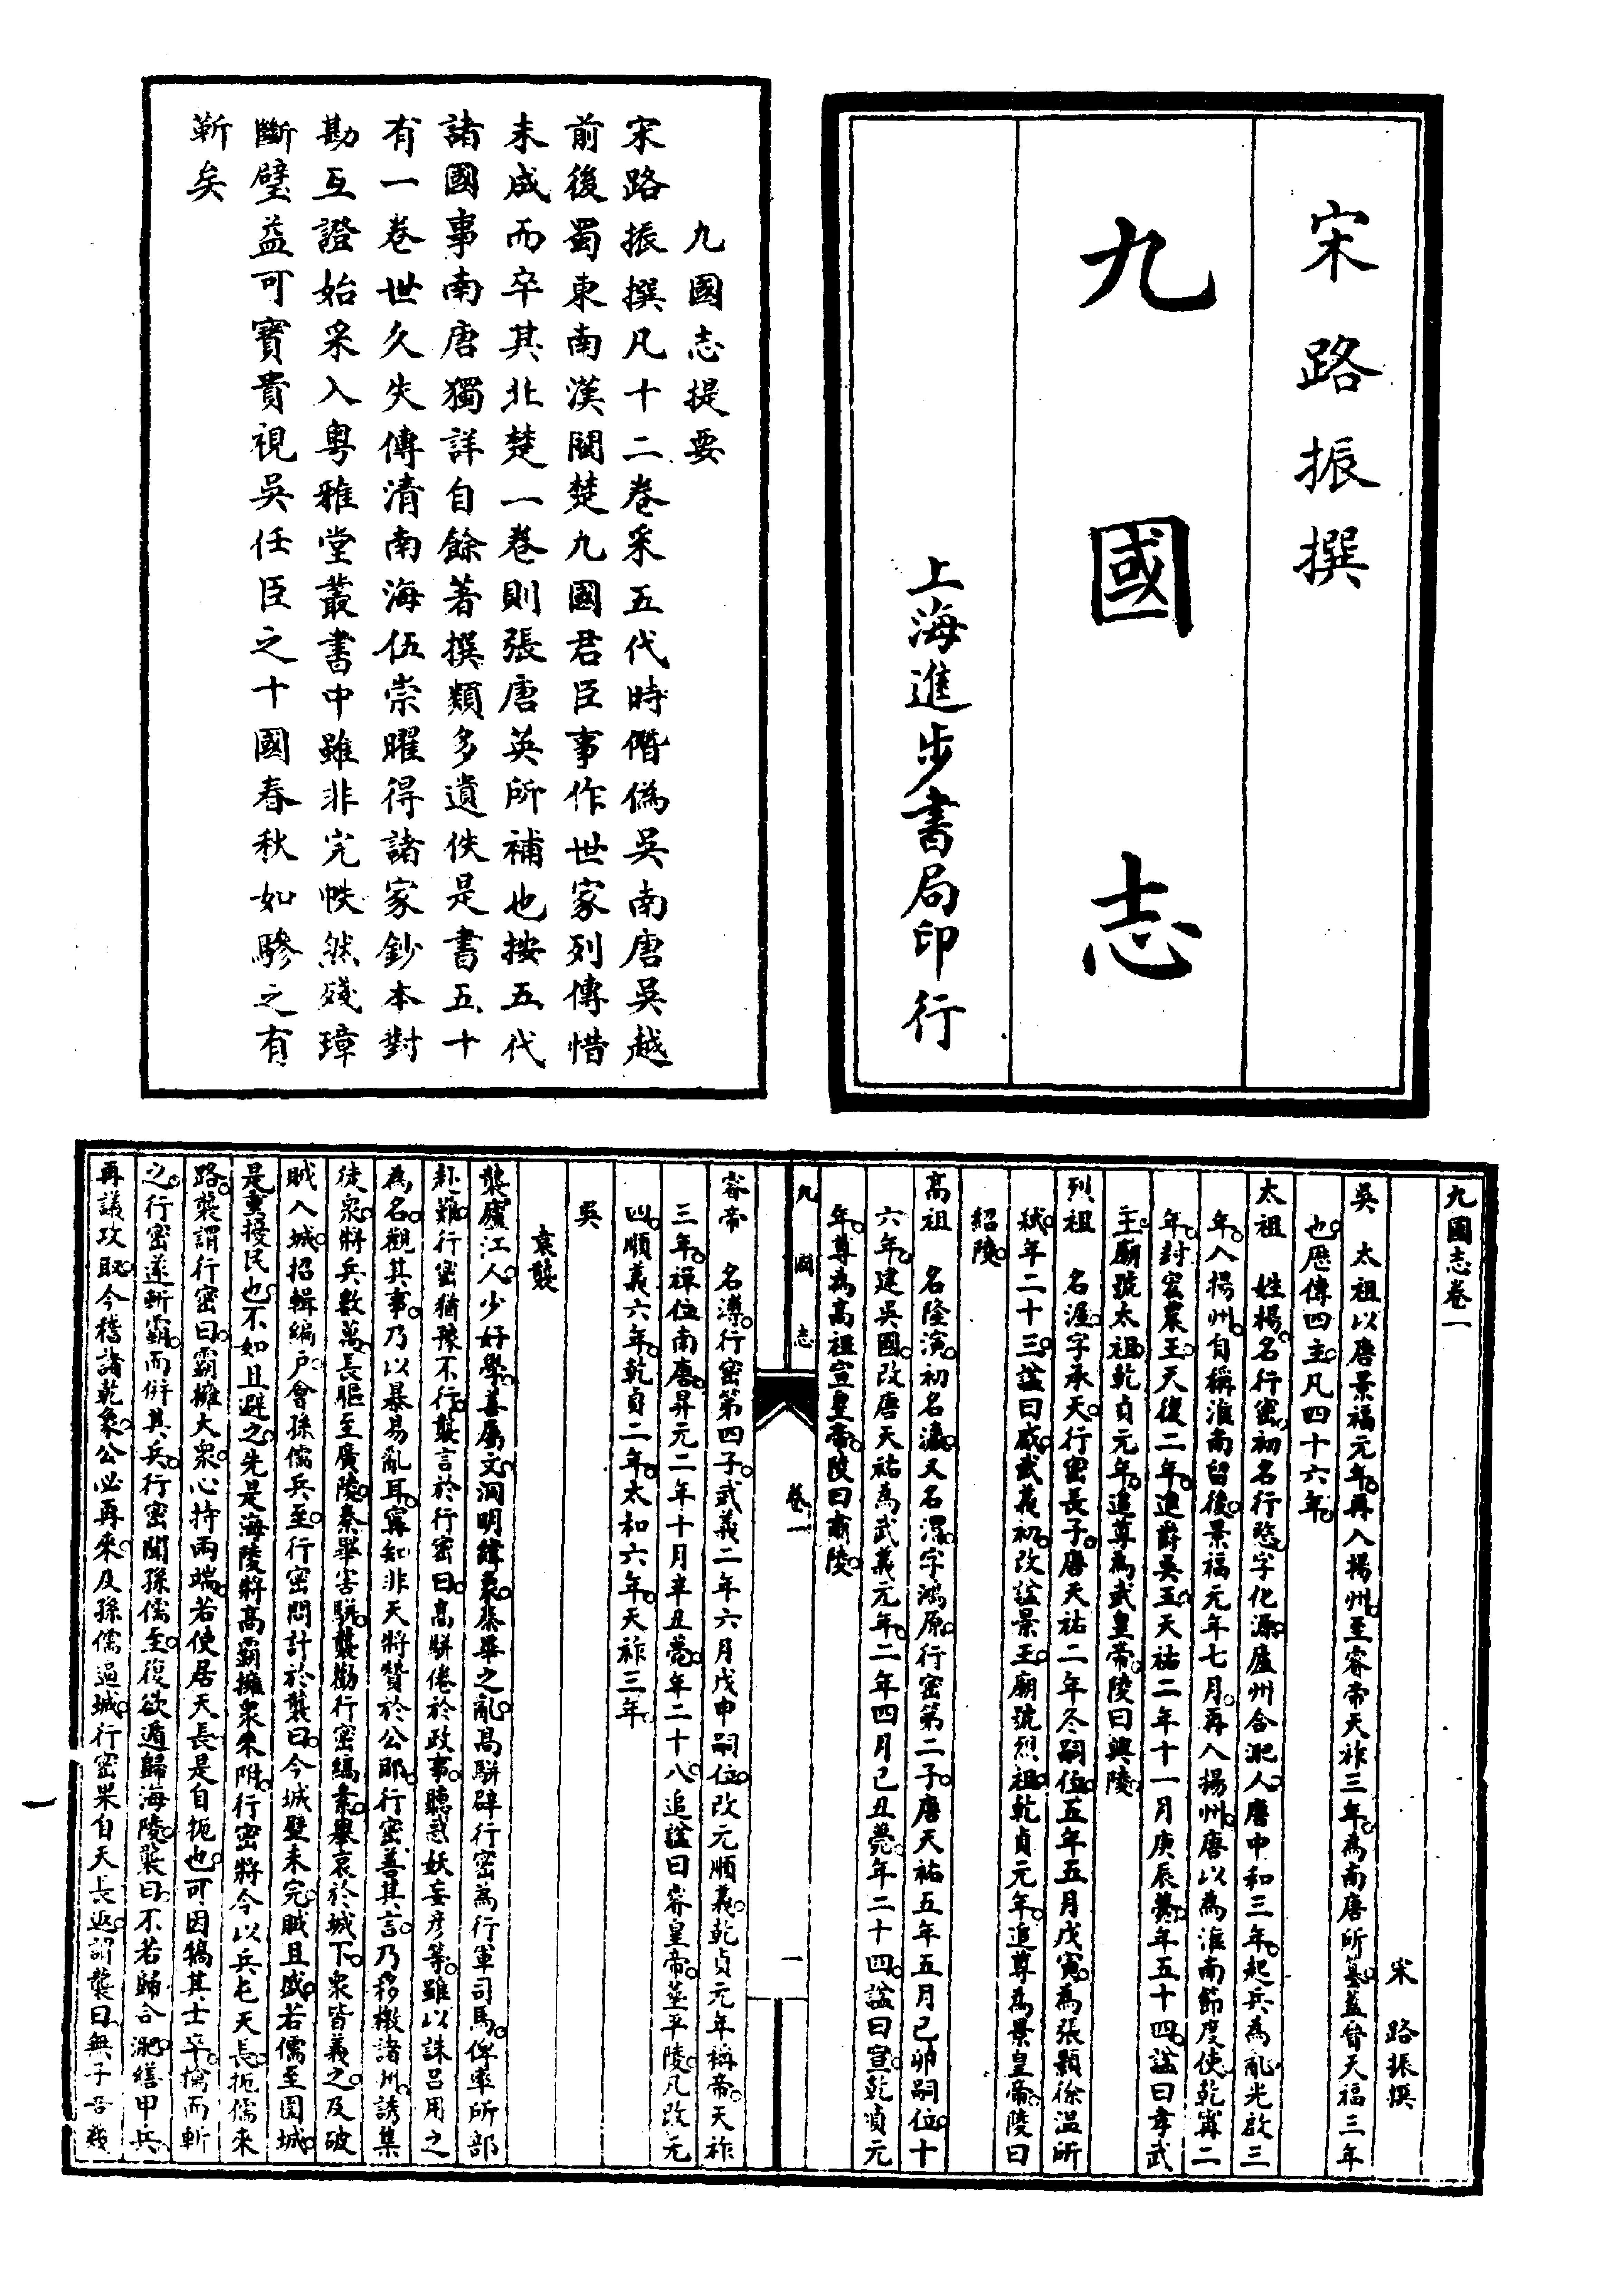 宋路振撰
九國志
上海進步書局印行
九國志提要
宋路振撰凡十二卷采五代時僭僞吳南唐吳越
前後蜀東南漢閩楚九國君臣事作世家列傳惜
未成而卒其北楚一卷則張唐英所補也按五代
諸國事南唐獨詳自餘著撰類多遺佚是書五十
有一卷世久失傳清南海伍崇曜得諸家鈔本對
勘互證始采入粵雅堂叢書中雖非完帙然殘璋
斷璧益可寶貴視吳任臣之十國春秋如驂之有
靳矣
九國志卷一
宋　路振撰
吳　太祖以唐景福元年。再入揚州。至睿帝天祚三年。為南唐所篡。蓋晉天福三年
也。歷傳四主。凡四十六年。
太祖　姓楊。名行密。初名行愍。字化源。廬州合淝人。唐中和三年。起兵為亂。光啟三
年。入揚州。自稱淮南留後。景福元年七月。再入揚州。唐以為淮南節度使。乾寧二
年。封宏農王。天復二年。進爵吳王。天祐二年十一月庚辰薨。年五十四。諡曰孝武
王。廟號太祖。乾貞元年。追尊為武皇帝。陵曰興陵。
烈祖　名渥。字承天。行密長子。唐天祐二年冬嗣位。五年五月戊寅。為張顥徐溫所
弒。年二十三。諡曰威。武義初。改諡景王。廟號烈祖。乾貞元年。追尊為景皇帝。陵曰
紹陵。
高祖　名隆演。初名瀛。又名渭。字鴻原。行密第二子。唐天祐五年五月己卯嗣位。十
六年。建吳國。改唐天祐為武義元年。二年四月己丑薨。年二十四。諡曰宣。乾貞元
年。尊為高祖宣皇帝。陵曰肅陵。
九國志
卷一
一
睿帝　名溥。行密第四子。武義二年六月戊申嗣位。改元順義。乾貞元年稱帝。天祚
三年。禪位南唐。昇元二年十月辛丑薨。年二十八。追諡曰睿皇帝。葬平陵。凡改元
四。順義六年。乾貞二年。太和六年。天祚三年。
吳
袁襲
襲。廬江人。少好學。善屬文。洞明緯象。秦畢之亂。高駢辟行密為行軍司馬。俾率所部
赴難。行密猶豫不行。襲言於行密曰。高駢倦於政事。聽惑妖妄。彥等。雖以誅呂用之
為名。觀其事。乃以暴易亂耳。寧知非天將贊於公耶。行密善其言。乃移檄諸州。誘集
徒眾。將兵數萬。長驅至廣陵。秦畢害駢。襲勸行密縞素。舉哀於城下。眾皆義之。及破
賊入城。招輯編戶。會孫儒兵至。行密問計於襲曰。今城壁未完。賊且盛。若儒至圍城。
是重擾民也。不如且避之。先是海陵將高霸擁眾來附。行密將令以兵屯天長。扼儒來
路。襲謂行密曰。霸擁大眾。心持兩端。若使居天長。是自扼也。可因犒其士卒。擒而斬
之。行密遂斬霸。而併其兵。行密聞孫儒至。復欲遁歸海陵。襲曰。不若歸合淝。繕甲兵。
再議攻取。今稽諸乾象。公必再來。及孫儒逼城。行密果自天長返。謂襲曰。無子吾幾
一